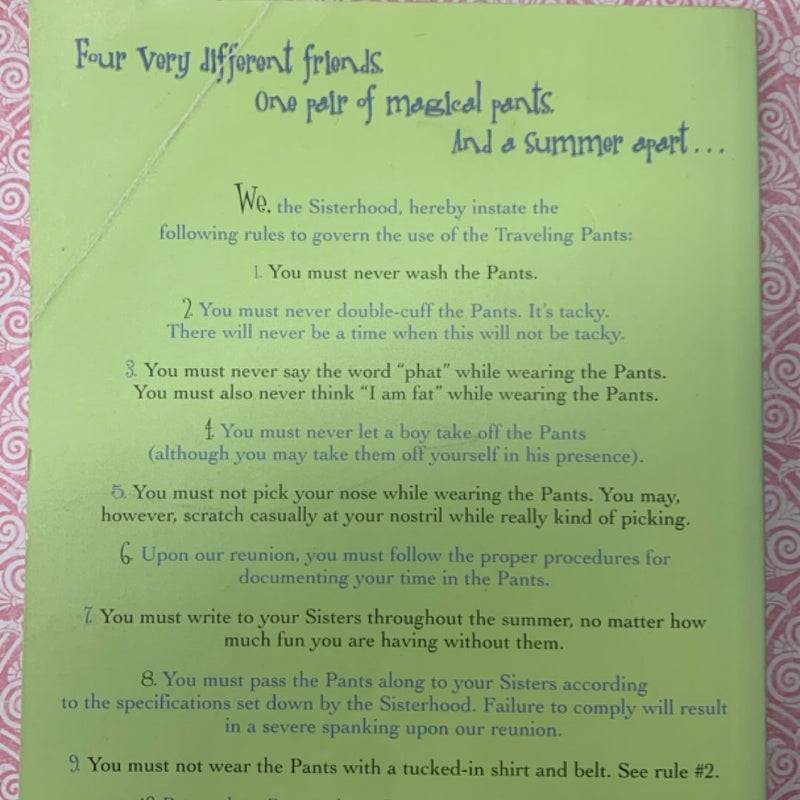 Four very different friends.
One pair of magical pants.
And a summer apart...
We, the Sisterhood, hereby instate the
following rules to govern the use of the Traveling Pants:
1. You must never wash the Pants.
2. You must never double-cuff the Pants. It's tacky.
There will never be a time when this will not be tacky.
3. You must never say the word “phat” while wearing the Pants.
You must also never think “I am fat” while wearing the Pants.
4. You must never let a boy take off the Pants
(although you may take them off yourself in his presence).
5. You must not pick your nose while wearing the Pants. You may,
however, scratch casually at your nostril while really kind of picking.
6. Upon our reunion, you must follow the proper procedures for
documenting your time in the Pants.
7. You must write to your Sisters throughout the summer, no matter how
much fun you are having without them.
8. You must pass the Pants along to your Sisters according
to the specifications set down by the Sisterhood. Failure to comply will result
in a severe spanking upon our reunion.
9. You must not wear the Pants with a tucked-in shirt and belt. See rule #2.